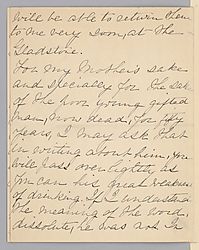 will be able to return them
to me very soon, at the
Gladstone.
For my Mother's sake
and specially for the sake
of the poor young gifted
man, now dead, for fifty
years, I may ask that
in writing about him, you
will pass over lightly, as
you can his great weakness
of drinking. If I understand
the meaning of the word,
dissolute, he was not in